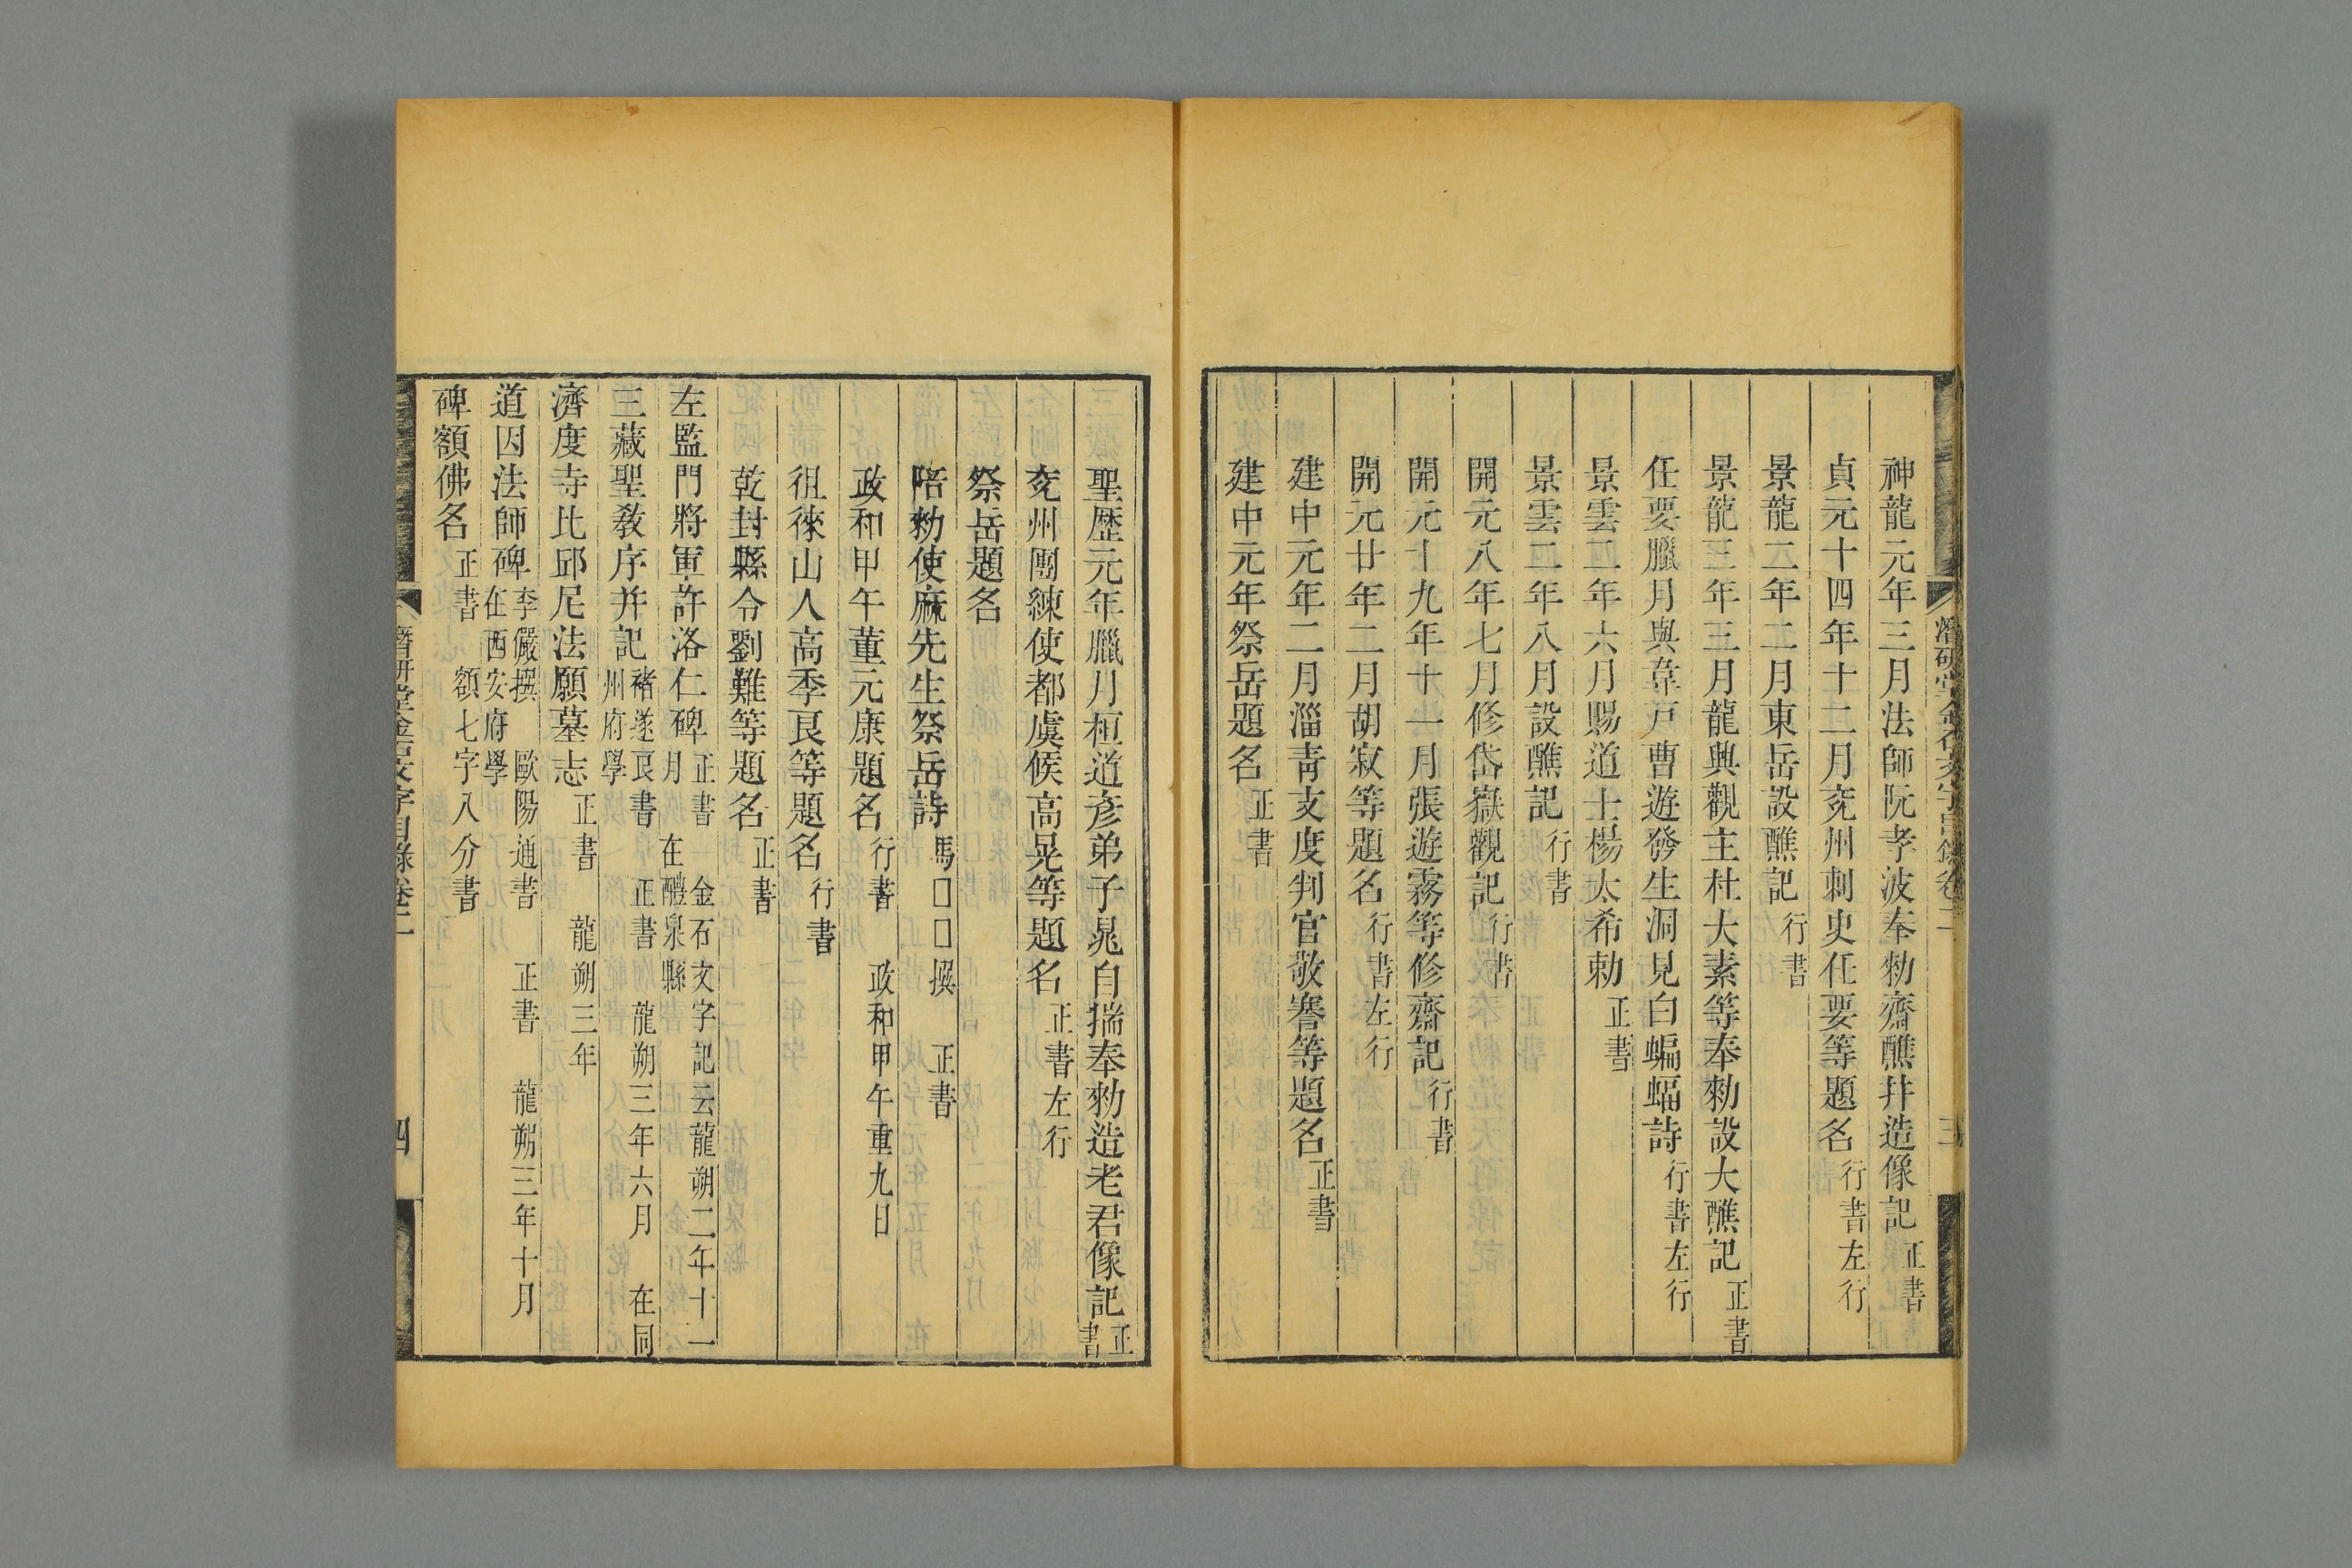 神龍元年三月法師阮孝波奉勑齋醮并造像記 正書
貞元十四年十二月兖州刺史任要等題名 行書左行
景龍二年二月東岳設醮記 行書
景龍三年三月龍興觀主杜大素等奉勑設大醮記 正書
任要臘月與韋戸曹遊發生洞見白蝙蝠詩 行書左行
景雲二年六月賜道士楊太希勅 正書
景雲二年八月設醮記 行書
開元八年七月修岱嶽觀記 行書
開元十九年十一月張遊霧等修齋記 行書
開元廿年二月胡寂等題名 行書左行
建中元年二月淄青支度判官敬謇等題名 正書
建中元年祭岳題名 正書
潛研堂金石文字目錄卷二 三
聖歷元年臘月桓道彦弟子晁自揣奉勑造老君像記 正書
兖州團練使都虞候高晃等題名 正書左行
祭岳題名
陪勑使麻先生祭岳詩 馬□□撰 正書
政和甲午董元康題名 行書 政和甲午重九日
徂徠山人高季良等題名 行書
乾封縣令劉難等題名 正書
左監門將軍許洛仁碑 正書 金石文字記云龍朔二年十一月 在醴泉縣
三藏聖教序并記 褚遂良書 正書 龍朔三年六月 在同州府學
濟度寺比邱尼法願墓志 正書 龍朔三年
道因法師碑 李儼撰 歐陽通書 正書 龍朔三年十月 在西安府學
碑額佛名 正書 額七字八分書
潛研堂金石文字目錄卷二 四